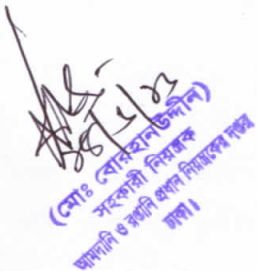 (মোঃ বোরহানউদ্দীন)
সহকারী নিয়ন্ত্রক
আমদানি ও রপ্তানি প্রধান নিয়ন্ত্রকের দপ্তর
ঢাকা।